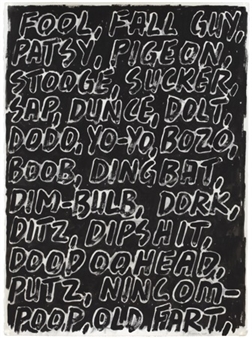 FOOL, FALL GUY,
PATSY, PIGEON,
STOOGE, SUCKER,
SAP, DUNCE, DOLT,
DODO, YO-YO, BOZO,
BOOB, DINGBAT,
DIM-BULB, DORK,
DITZ, DIPSHIT,
DOODOOHEAD,
PUTZ, NINCOM-
POOP, OLD FART,